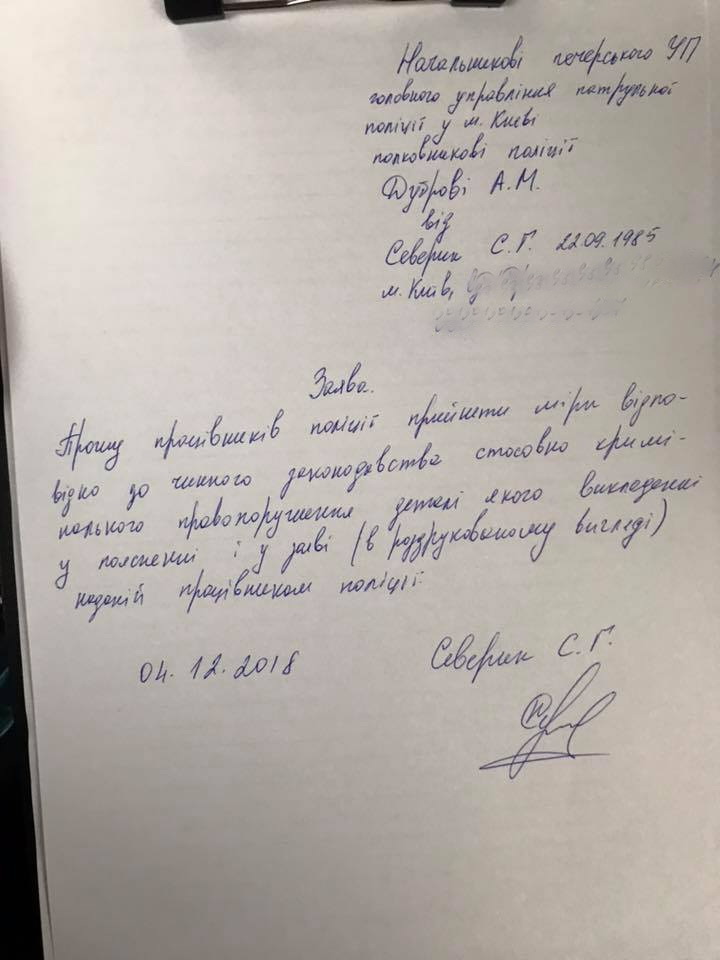 Начальникові печерського УП
головного управління патрульної
поліції у м. Києві
полковникові поліції
А.М.
від
Северин С. Г. 22.09.1985
м. Київ,
Заява.
Прошу працівників поліції прийняти міри відпо-
відно до чинного законодавства стосовно кримі-
нального правопорушення деталі якого викладенні
у поясненні і у заяві (в роздрукованому вигляді)
наданій працівником поліції.
04.12.2018
Северин С. Г.